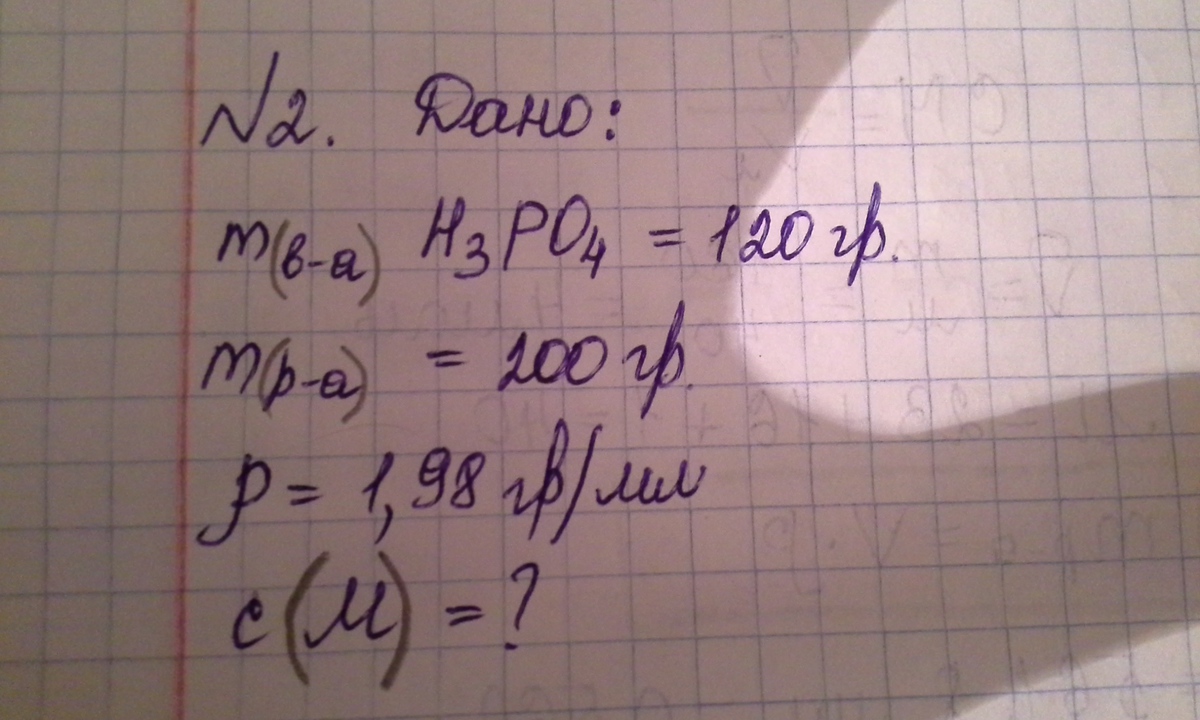 №2. Дано:
m(в-а) H₃PO₄ = 120 гр.
m(р-а) = 200 гр.
ρ = 1,98 гр/мл
c(M) = ?